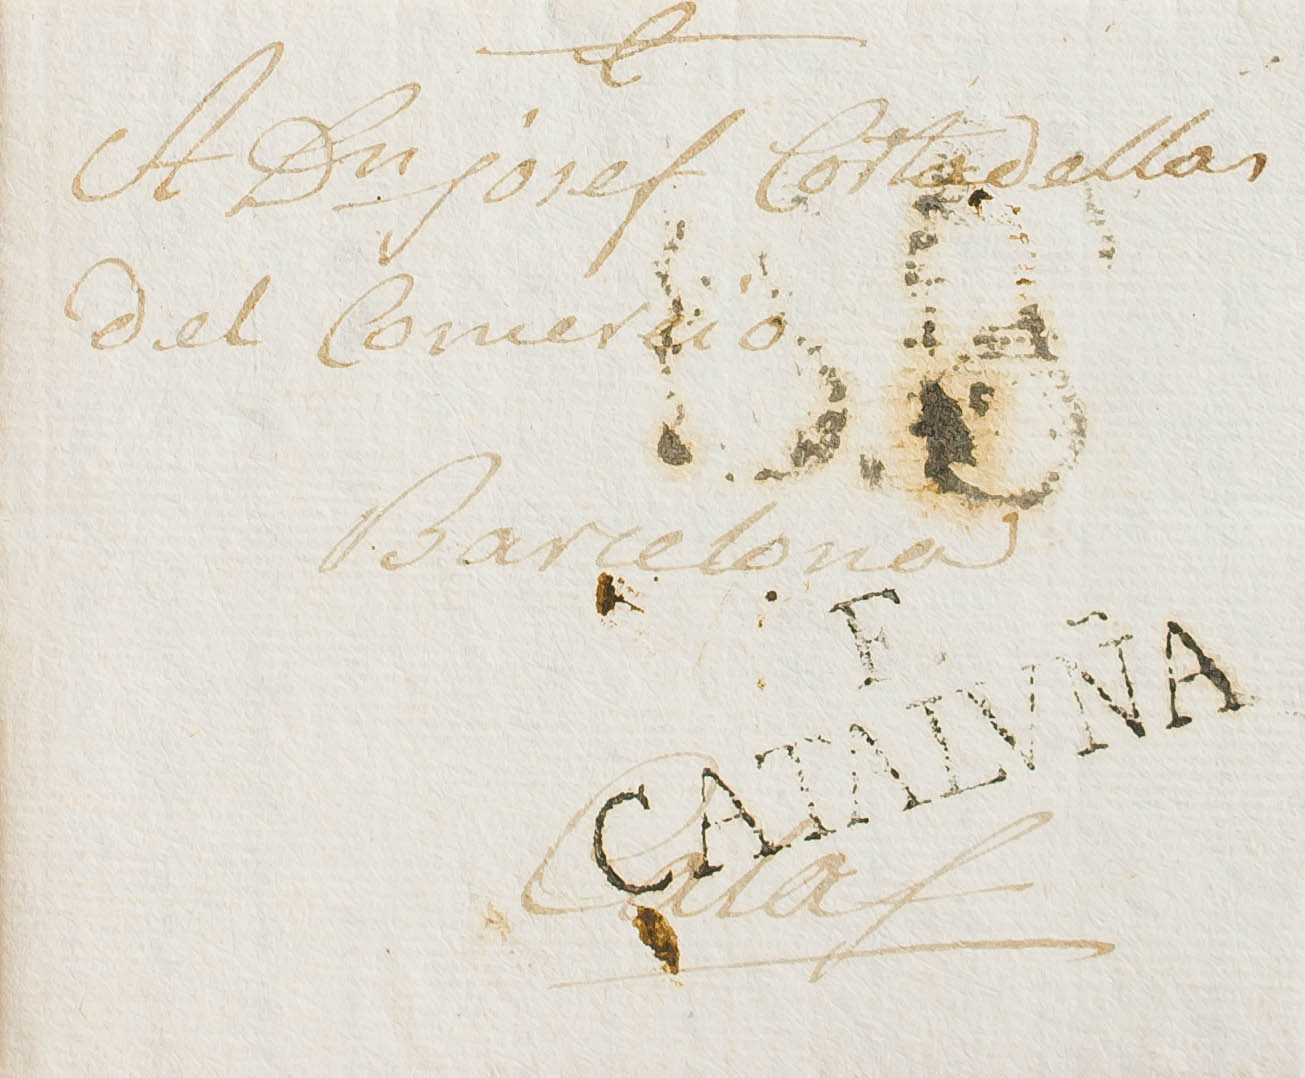 A Dn josef Cortadellas
del Comercio
Barcelona
F.
CATALVÑA
Calaf